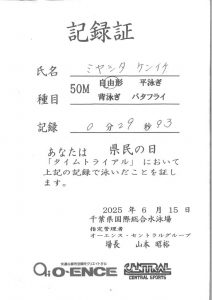 記録証
氏名 ミヤシタ ケンイチ
種目 50M 自由形 平泳ぎ
背泳ぎ バタフライ
記録 0分29秒93
あなたは 県民の日
「タイムトライアル」において
上記の記録で泳いだことを証し
ます。
2025年6月15日
千葉県国際総合水泳場
指定管理者
オーエンス・セントラルグループ
場長 山本 昭裕
快適な都市空間をクリエイトする
O-ENCE
CENTRAL
CENTRAL SPORTS